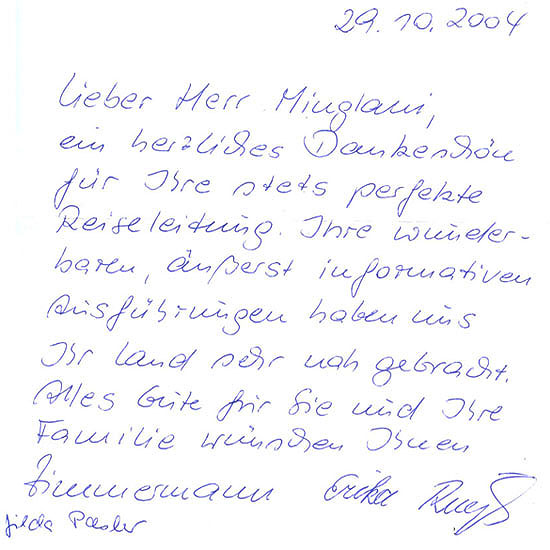 29.10.2004
Lieber Herr Minglani,
ein herzliches Dankeschön
für Ihre stets perfekte
Reiseleitung. Ihre wunder-
baren, äußerst informativen
Ausführungen haben uns
Ihr Land sehr nah gebracht.
Alles Gute für Sie und Ihre
Familie wünschen Ihnen
Zimmermann Erika
Gilda